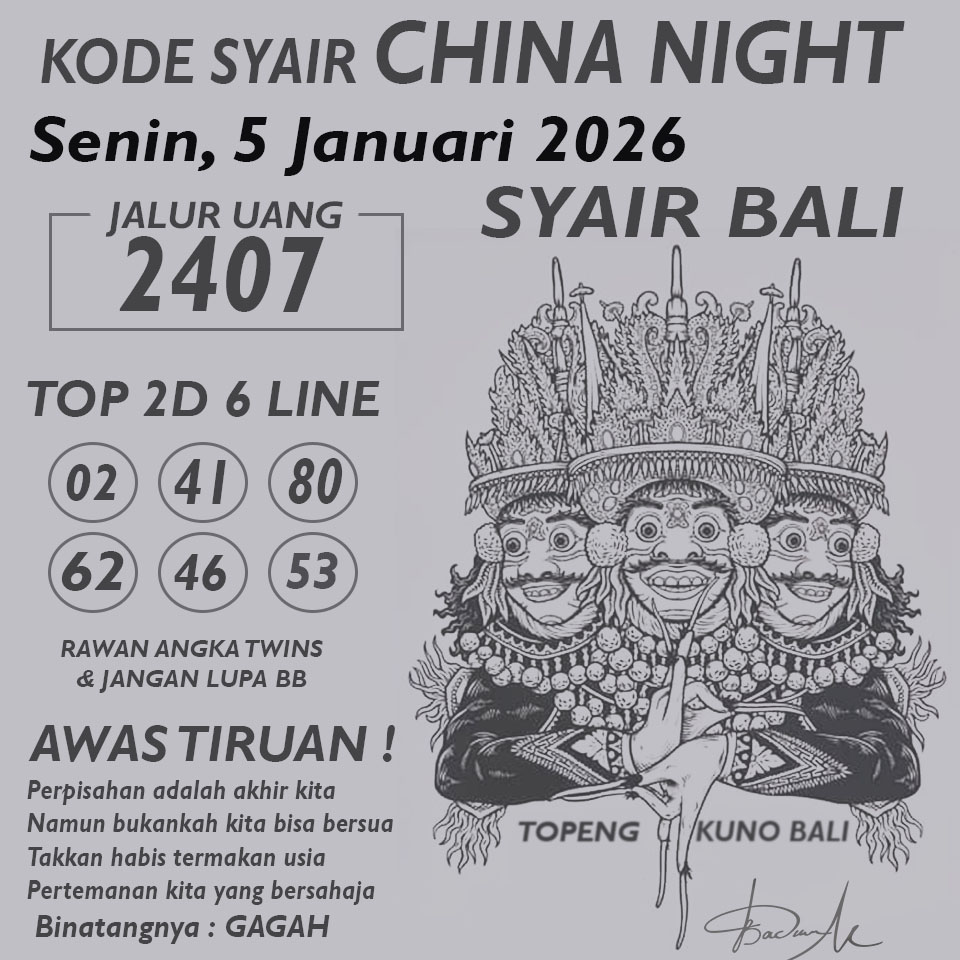 KODE SYAIR CHINA NIGHT
Senin, 5 Januari 2026
SYAIR BALI
JALUR UANG
2407
TOP 2D 6 LINE
02 41 80
62 46 53
RAWAN ANGKA TWINS
& JANGAN LUPA BB
AWAS TIRUAN !
Perpisahan adalah akhir kita
Namun bukankah kita bisa bersua
Takkan habis termakan usia
Pertemanan kita yang bersahaja
Binatangnya : GAGAH
TOPENG KUNO BALI